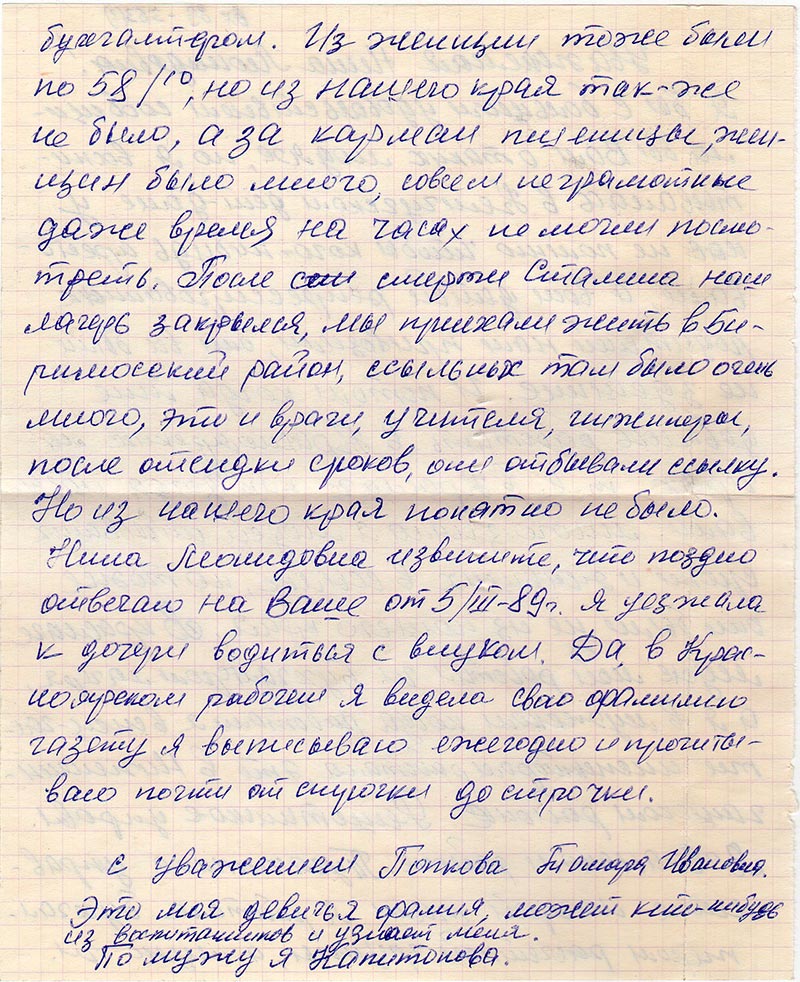 бухгалтером. Из женщин тоже были
по 58/10, но из нашего края так-же
не было, а за карман пшеницы, жен-
щин было много, совсем неграмотные
даже время на часах не могли посмо-
треть. После смерти Сталина наш
лагерь закрылся, мы приехали жить в Би-
рилюсский район, ссыльных там было очень
много, это и врачи, учителя, инженеры,
после отсидки сроков, они отбывали ссылку.
Но из нашего края понятно не было.
Нина Леонидовна извините, что поздно
отвечаю на Ваше от 5/III-89г. я уезжала
к дочери водиться с внуком. Да, в Крас-
ноярском рабочем я видела свою фамилию
газету я выписываю ежегодно и прочиты-
ваю почти от строчки до строчки.
с уважением Попкова Тамара Ивановна.
Это моя девичья фамлия, может кто-нибудь
из воспитанников и узнает меня.
По мужу я Капитонова.